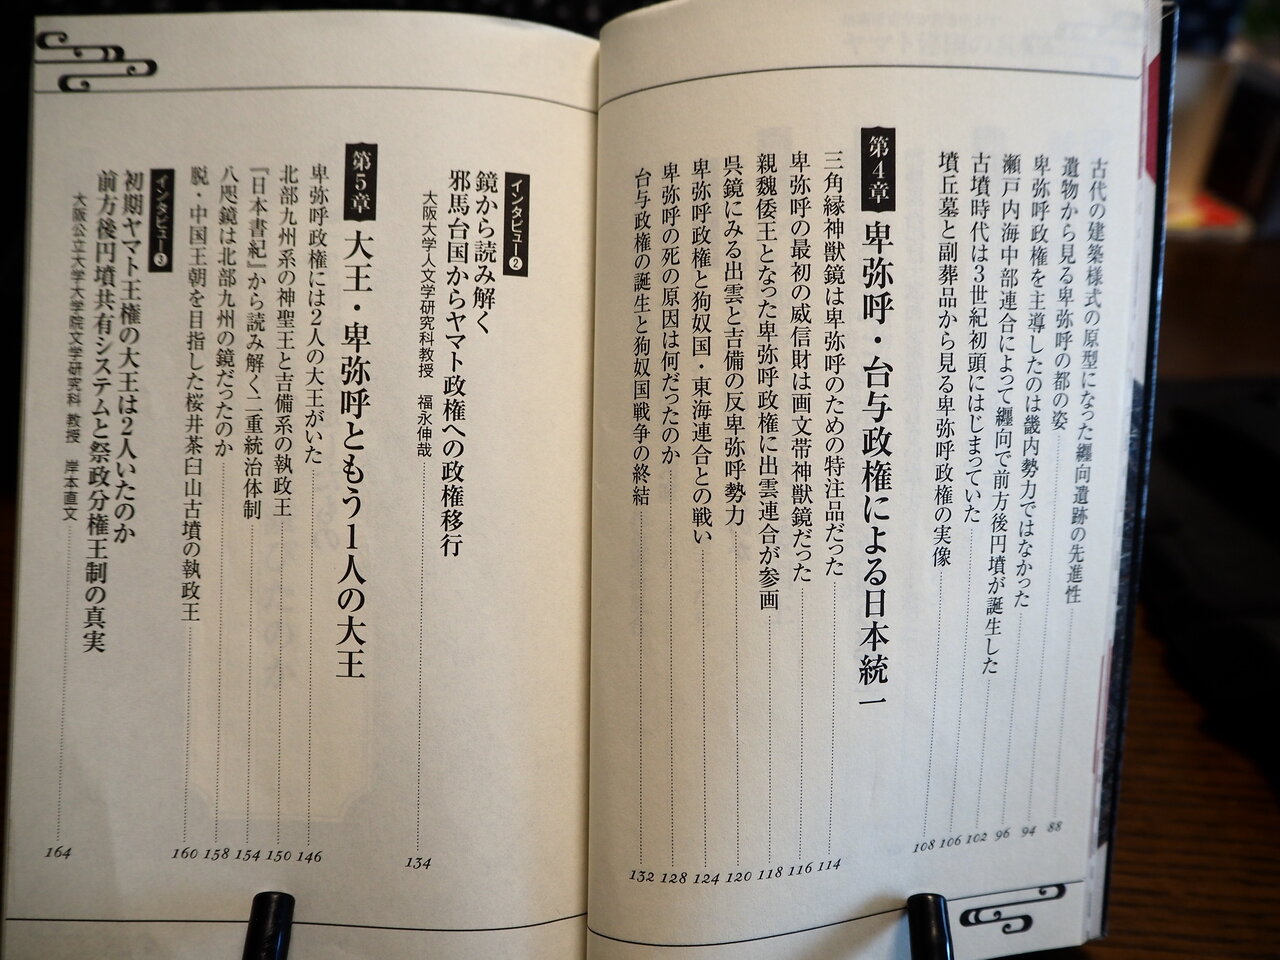 古代の建築様式の原型になった纒向遺跡の先進性 88
遺物から見る卑弥呼の都の姿 94
卑弥呼政権を主導したのは畿内勢力ではなかった 96
瀬戸内海中部連合によって纒向で前方後円墳が誕生した 102
古墳時代は3世紀初頭にはじまっていた 106
墳丘墓と副葬品から見る卑弥呼政権の実像 108
第4章 卑弥呼・台与政権による日本統一
三角縁神獣鏡は卑弥呼のための特注品だった 114
卑弥呼の最初の威信財は画文帯神獣鏡だった 116
親魏倭王となった卑弥呼政権に出雲連合が参画 118
呉鏡にみる出雲と吉備の反卑弥呼勢力 120
卑弥呼政権と狗奴国・東海連合との戦い 124
卑弥呼の死の原因は何だったのか 128
台与政権の誕生と狗奴国戦争の終結 132
インタビュー❷
鏡から読み解く
邪馬台国からヤマト政権への政権移行
大阪大学人文学研究科教授 福永伸哉 134
第5章 大王・卑弥呼ともう1人の大王
卑弥呼政権には2人の大王がいた 146
北部九州系の神聖王と吉備系の執政王 150
『日本書紀』から読み解く二重統治体制 154
八咫鏡は北部九州の鏡だったのか 158
脱・中国王朝を目指した桜井茶臼山古墳の執政王 160
インタビュー❸
初期ヤマト王権の大王は2人いたのか
前方後円墳共有システムと祭政分権王制の真実
大阪公立大学大学院文学研究科 教授 岸本直文 164